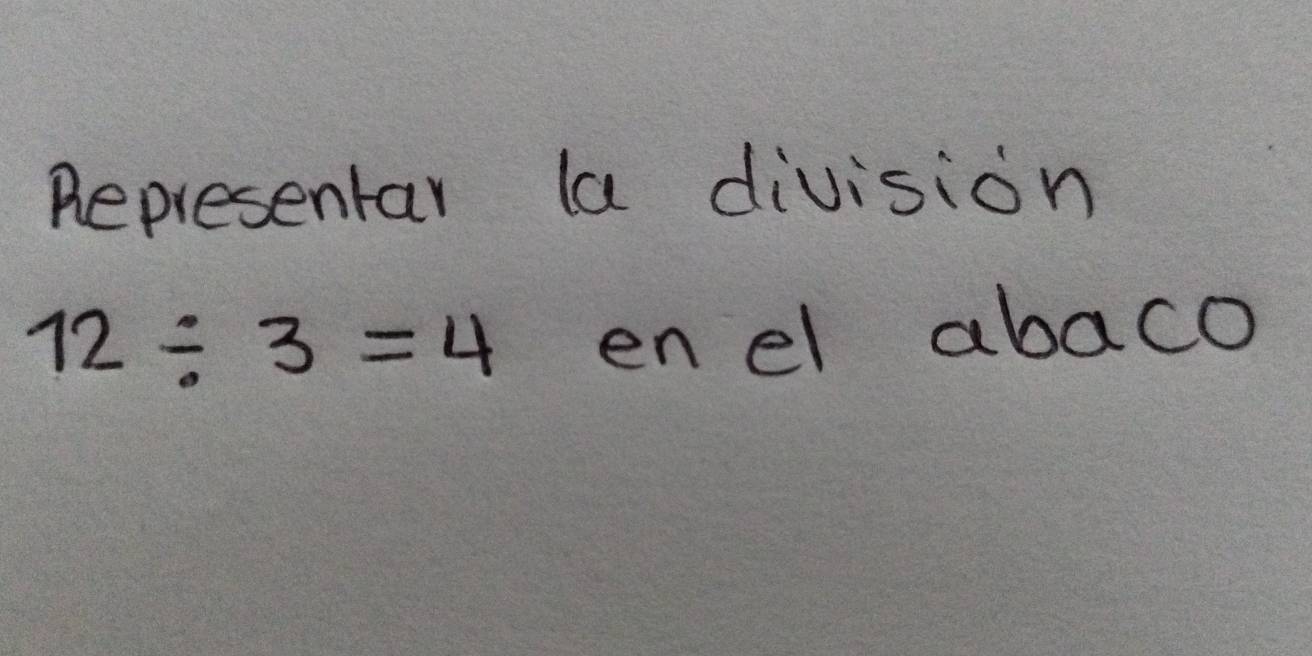 Representar la división
12 ÷ 3 = 4 en el abaco